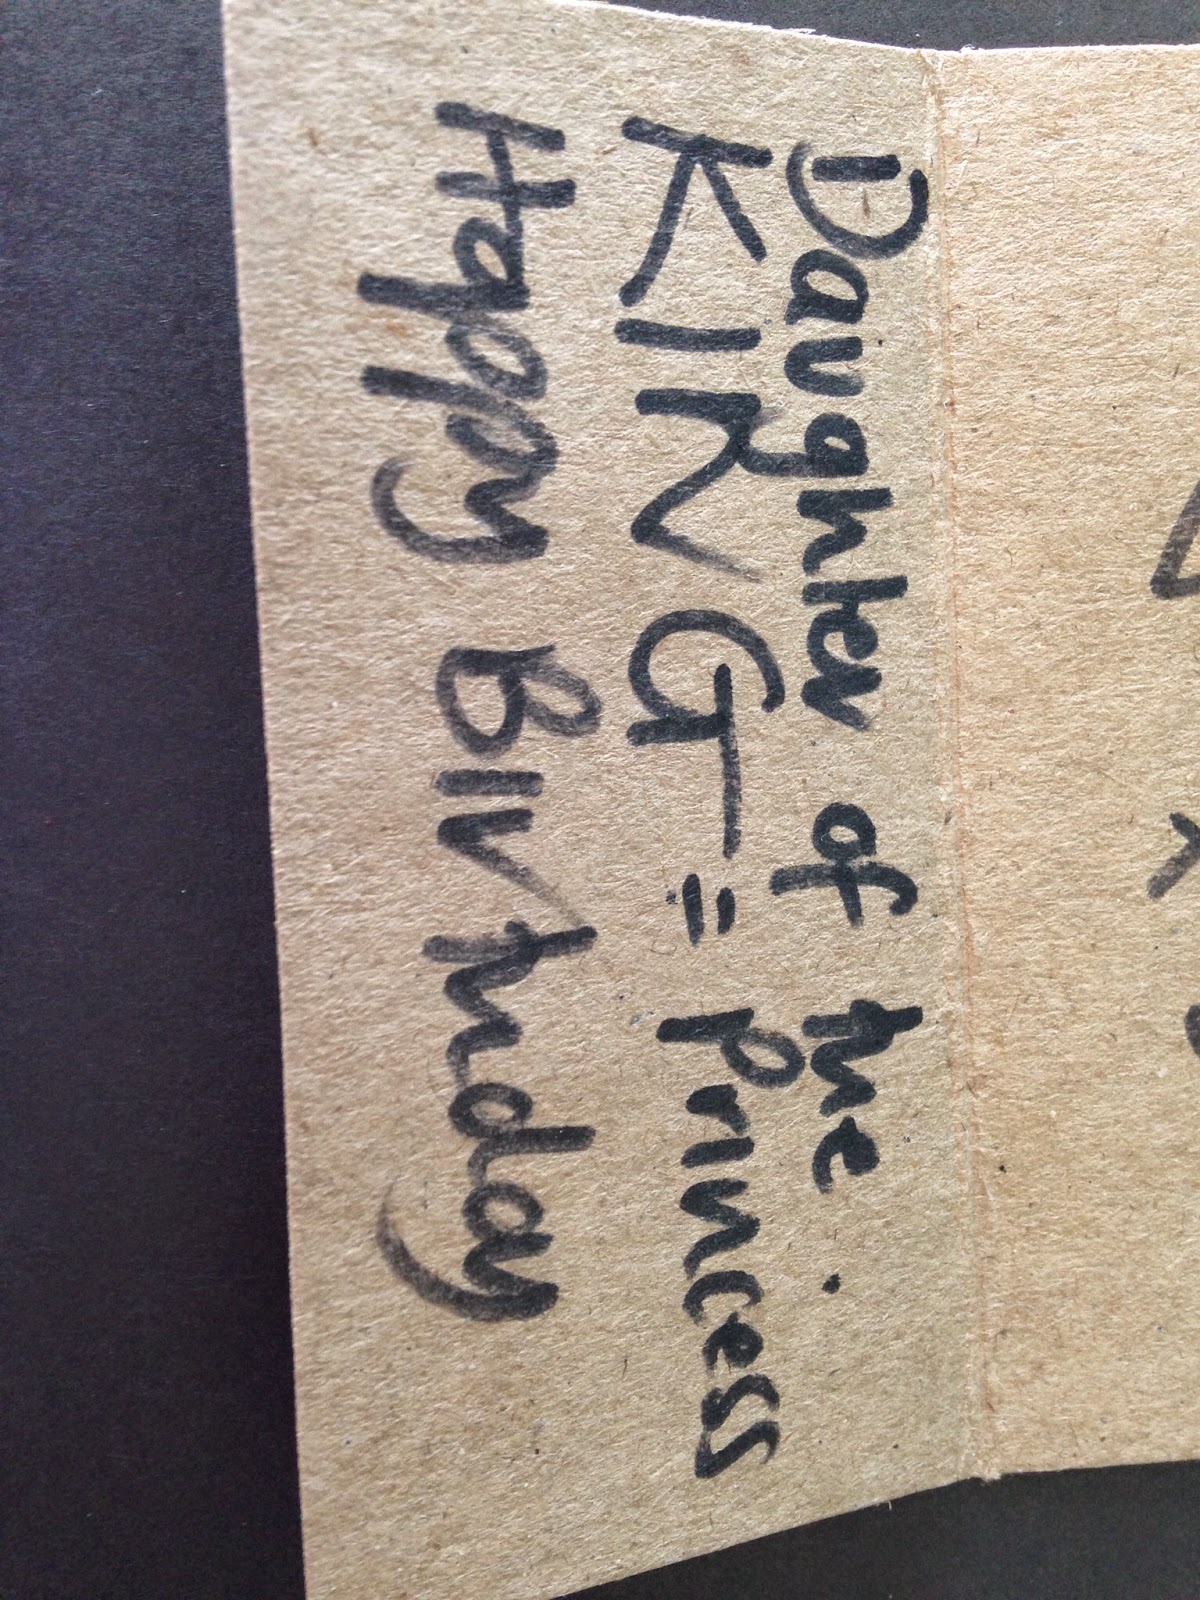 Daughter of the
KING = Princess
Happy Birthday